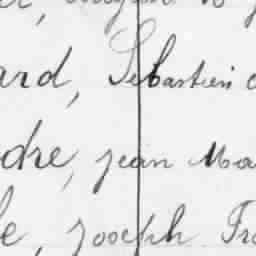 ard, Sébastien
dre, jean Ma
le, joseph Fra